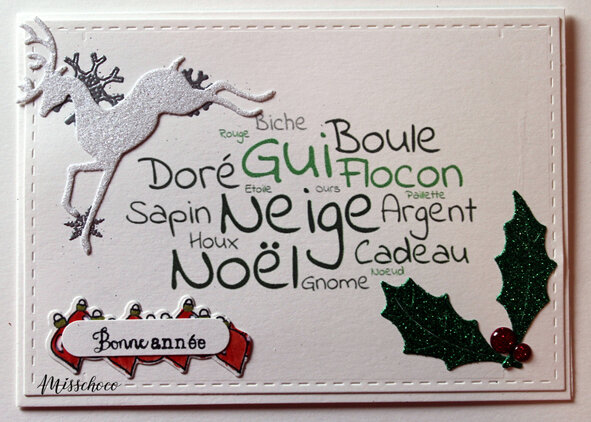 Biche
Rouge
Boule
Doré Gui Flocon
Etoile ours Paillette
Sapin Neige Argent
Houx
Noël Cadeau
Gnome Noeud
Bonne année
Misschoco